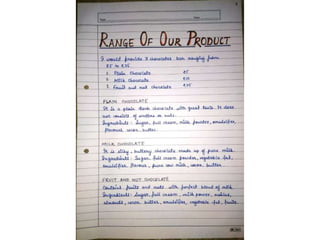 RANGE OF OUR PRODUCT
I would provide 3 chocolates bar ranging from
₹5 to ₹35
1. Plain Chocolate ₹5
2. Milk Chocolate
3. Fruit and nut chocolate ₹35
PLAIN CHOCOLATE
It is a plain dark chocolate with great taste. It does
not consists of waters or nuts.
Ingredients: Sugar, full cream, milk powder, emulsifier,
flavours, water, butter.
MILK CHOCOLATE
It is silky, buttery chocolate made up of pure milk.
Ingredients: Sugar, full cream powder, vegetable fat,
emulsifier, flavour, pure cow milk, water, butter.
FRUIT AND NUT CHOCOLATE
Contains fruits and nuts with perfect blend of milk.
Ingredients: Sugar, full cream, milk powder, raisins,
almonds, water, butter, emulsifier, vegetable fat, fruits.